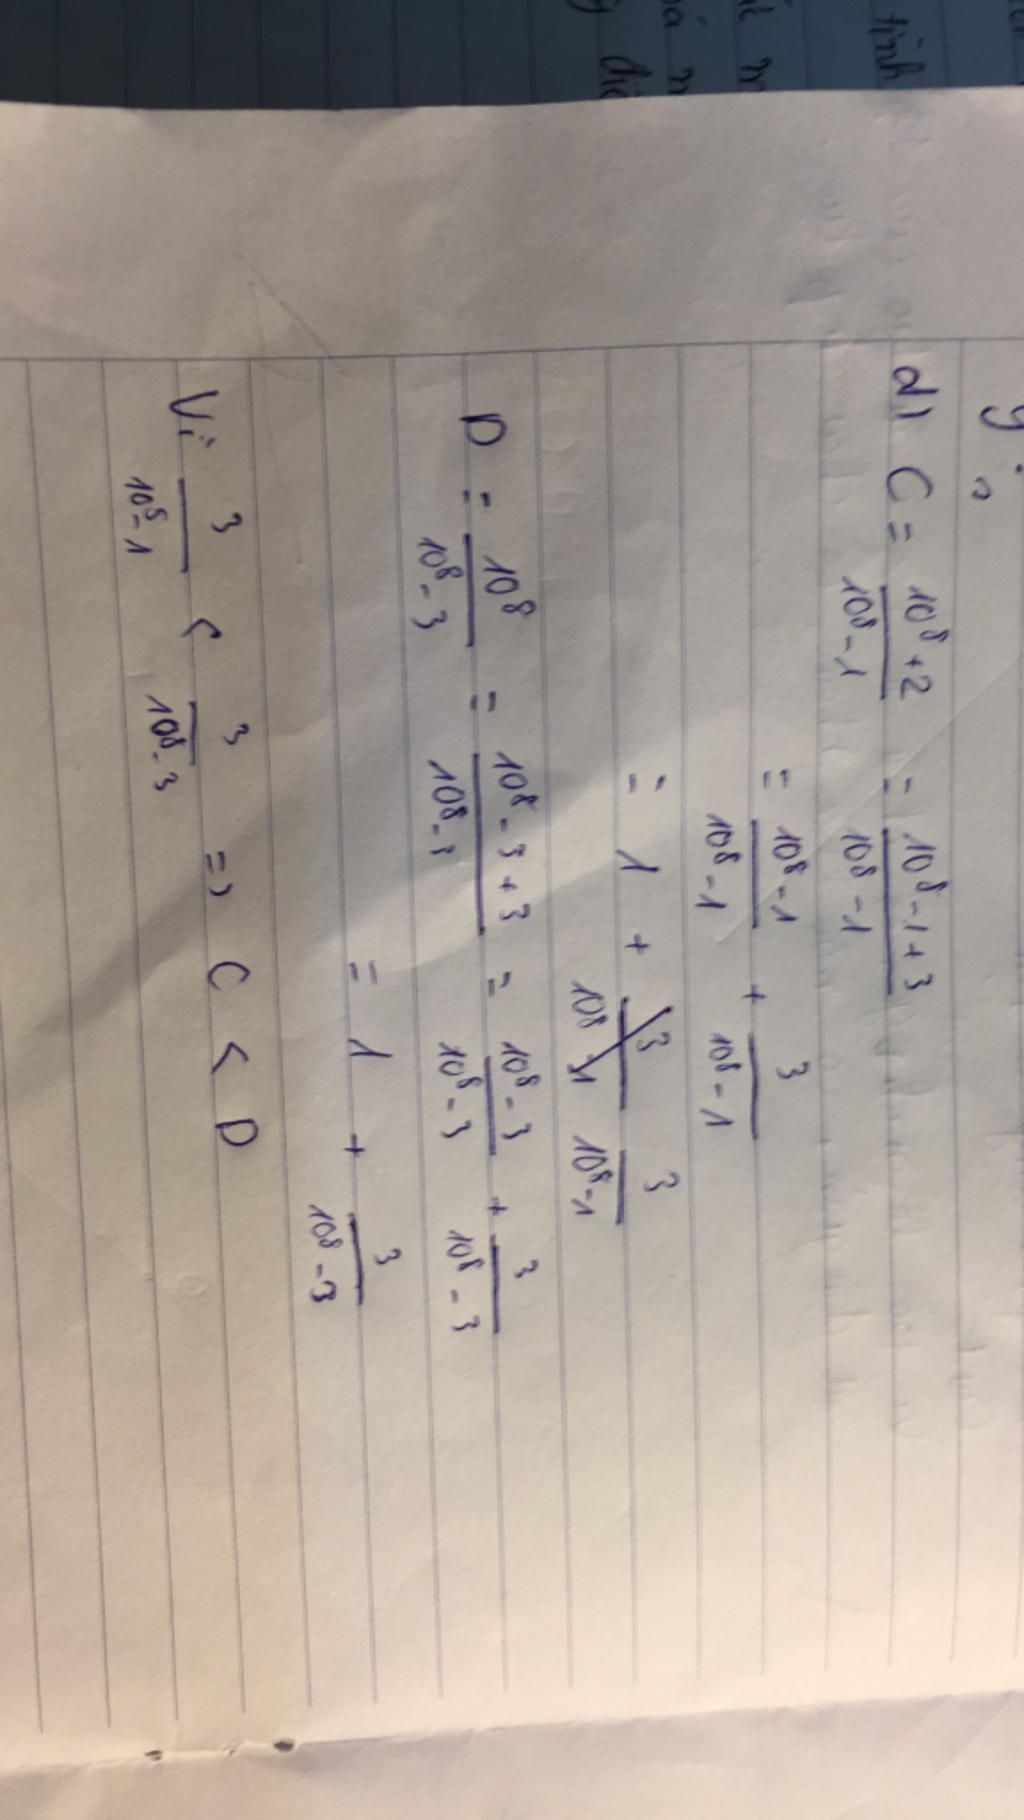 d) C = \frac{10^8+2}{10^8-1} = \frac{10^8-1+3}{10^8-1}
= \frac{10^8-1}{10^8-1} + \frac{3}{10^8-1}
= 1 + \frac{3}{10^8-1}
D = \frac{10^8}{10^8-3} = \frac{10^8-3+3}{10^8-3} = \frac{10^8-3}{10^8-3} + \frac{3}{10^8-3}
= 1 + \frac{3}{10^8-3}
Vì \frac{3}{10^8-1} < \frac{3}{10^8-3} => C < D